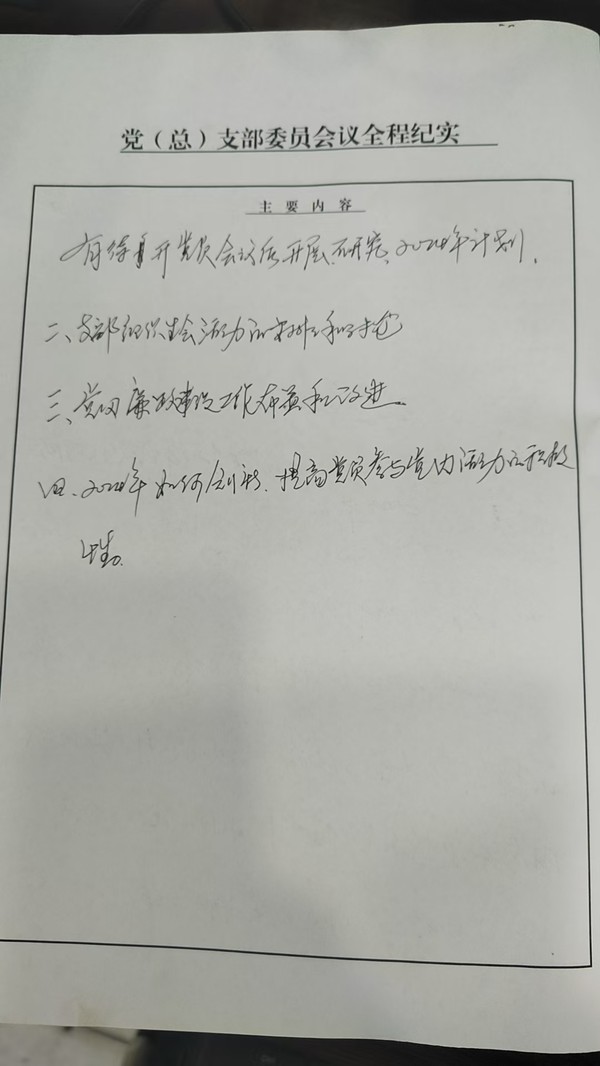 党（总）支部委员会议全程纪实
主要内容
有待召开党员会议后开展、研究、2024年计划。
二、支部组织生会活动的安排和
三、党内廉政建设工作布置和改进
四、2024年如何创新、提高党员参与党内活动的积极
性。